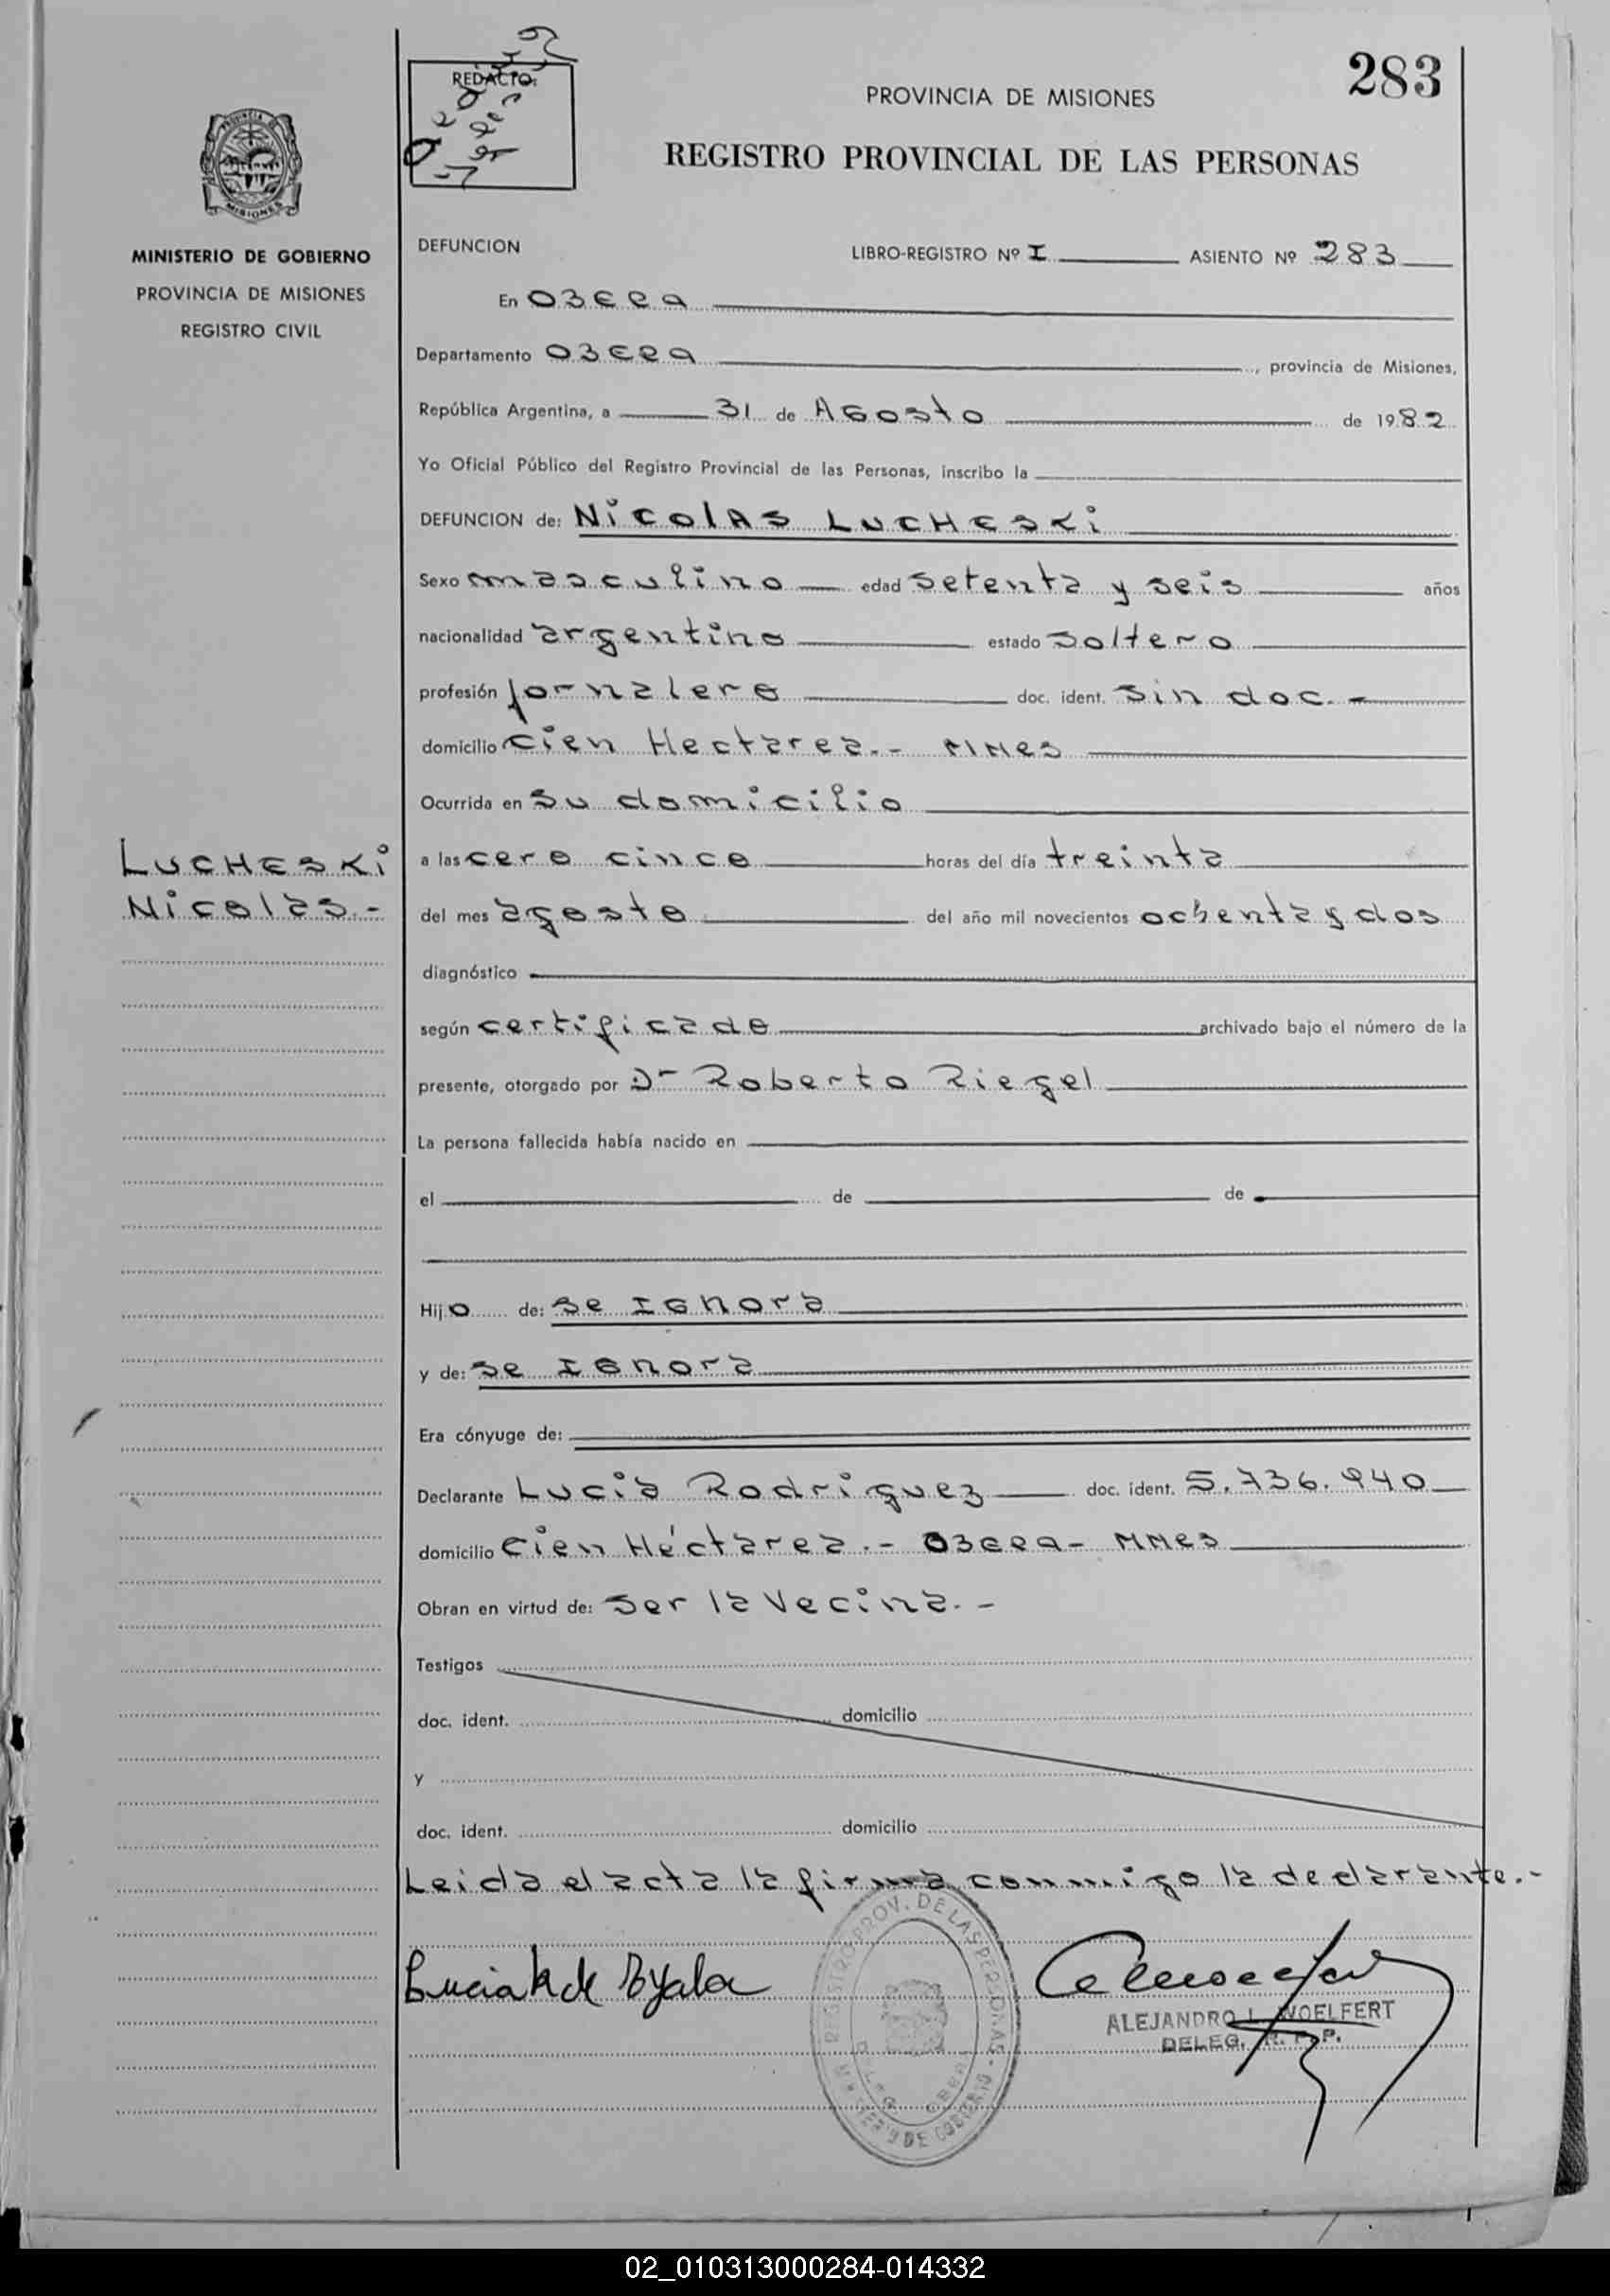 283
REDACTO:
PROVINCIA DE MISIONES
REGISTRO PROVINCIAL DE LAS PERSONAS
MISIONES
MINISTERIO DE GOBIERNO
PROVINCIA DE MISIONES
REGISTRO CIVIL
DEFUNCION LIBRO-REGISTRO Nº I ASIENTO Nº 283
En OBERA
Departamento OBERA, provincia de Misiones,
República Argentina, a 31 de AGosto de 1982
Yo Oficial Público del Registro Provincial de las Personas, inscribo la
DEFUNCION de: NicolAS LUCHESKi
Sexo masculino edad setenta y seis años
nacionalidad argentino estado soltero
profesión jornalero doc. ident. sin doc. -
domicilio cien Hectarea.- MNes
Ocurrida en su domicilio
LUCHESKi
Nicolas.-
a las cero cinco horas del día treinta
del mes agosto del año mil novecientos ochenta y dos
diagnóstico
según certificado archivado bajo el número de la
presente, otorgado por Dr Roberto Riegel
La persona fallecida había nacido en
el de de
Hijo de: se IGnora
y de: se IGnora
Era cónyuge de:
Declarante Lucia Rodriguez doc. ident. 5.736.940
domicilio Cien Héctarea.- OBERA- MNes
Obran en virtud de: ser la Vecina.-
Testigos
doc. ident. domicilio
y
doc. ident. domicilio
Leida el acta la firma conmigo la declarante.-
Lucia R de Ayala
REGISTRO PROV. DE LAS PERSONAS
ALEJANDRO L. WOELFERT
DELEG. R. P. P.
02_010313000284-014332